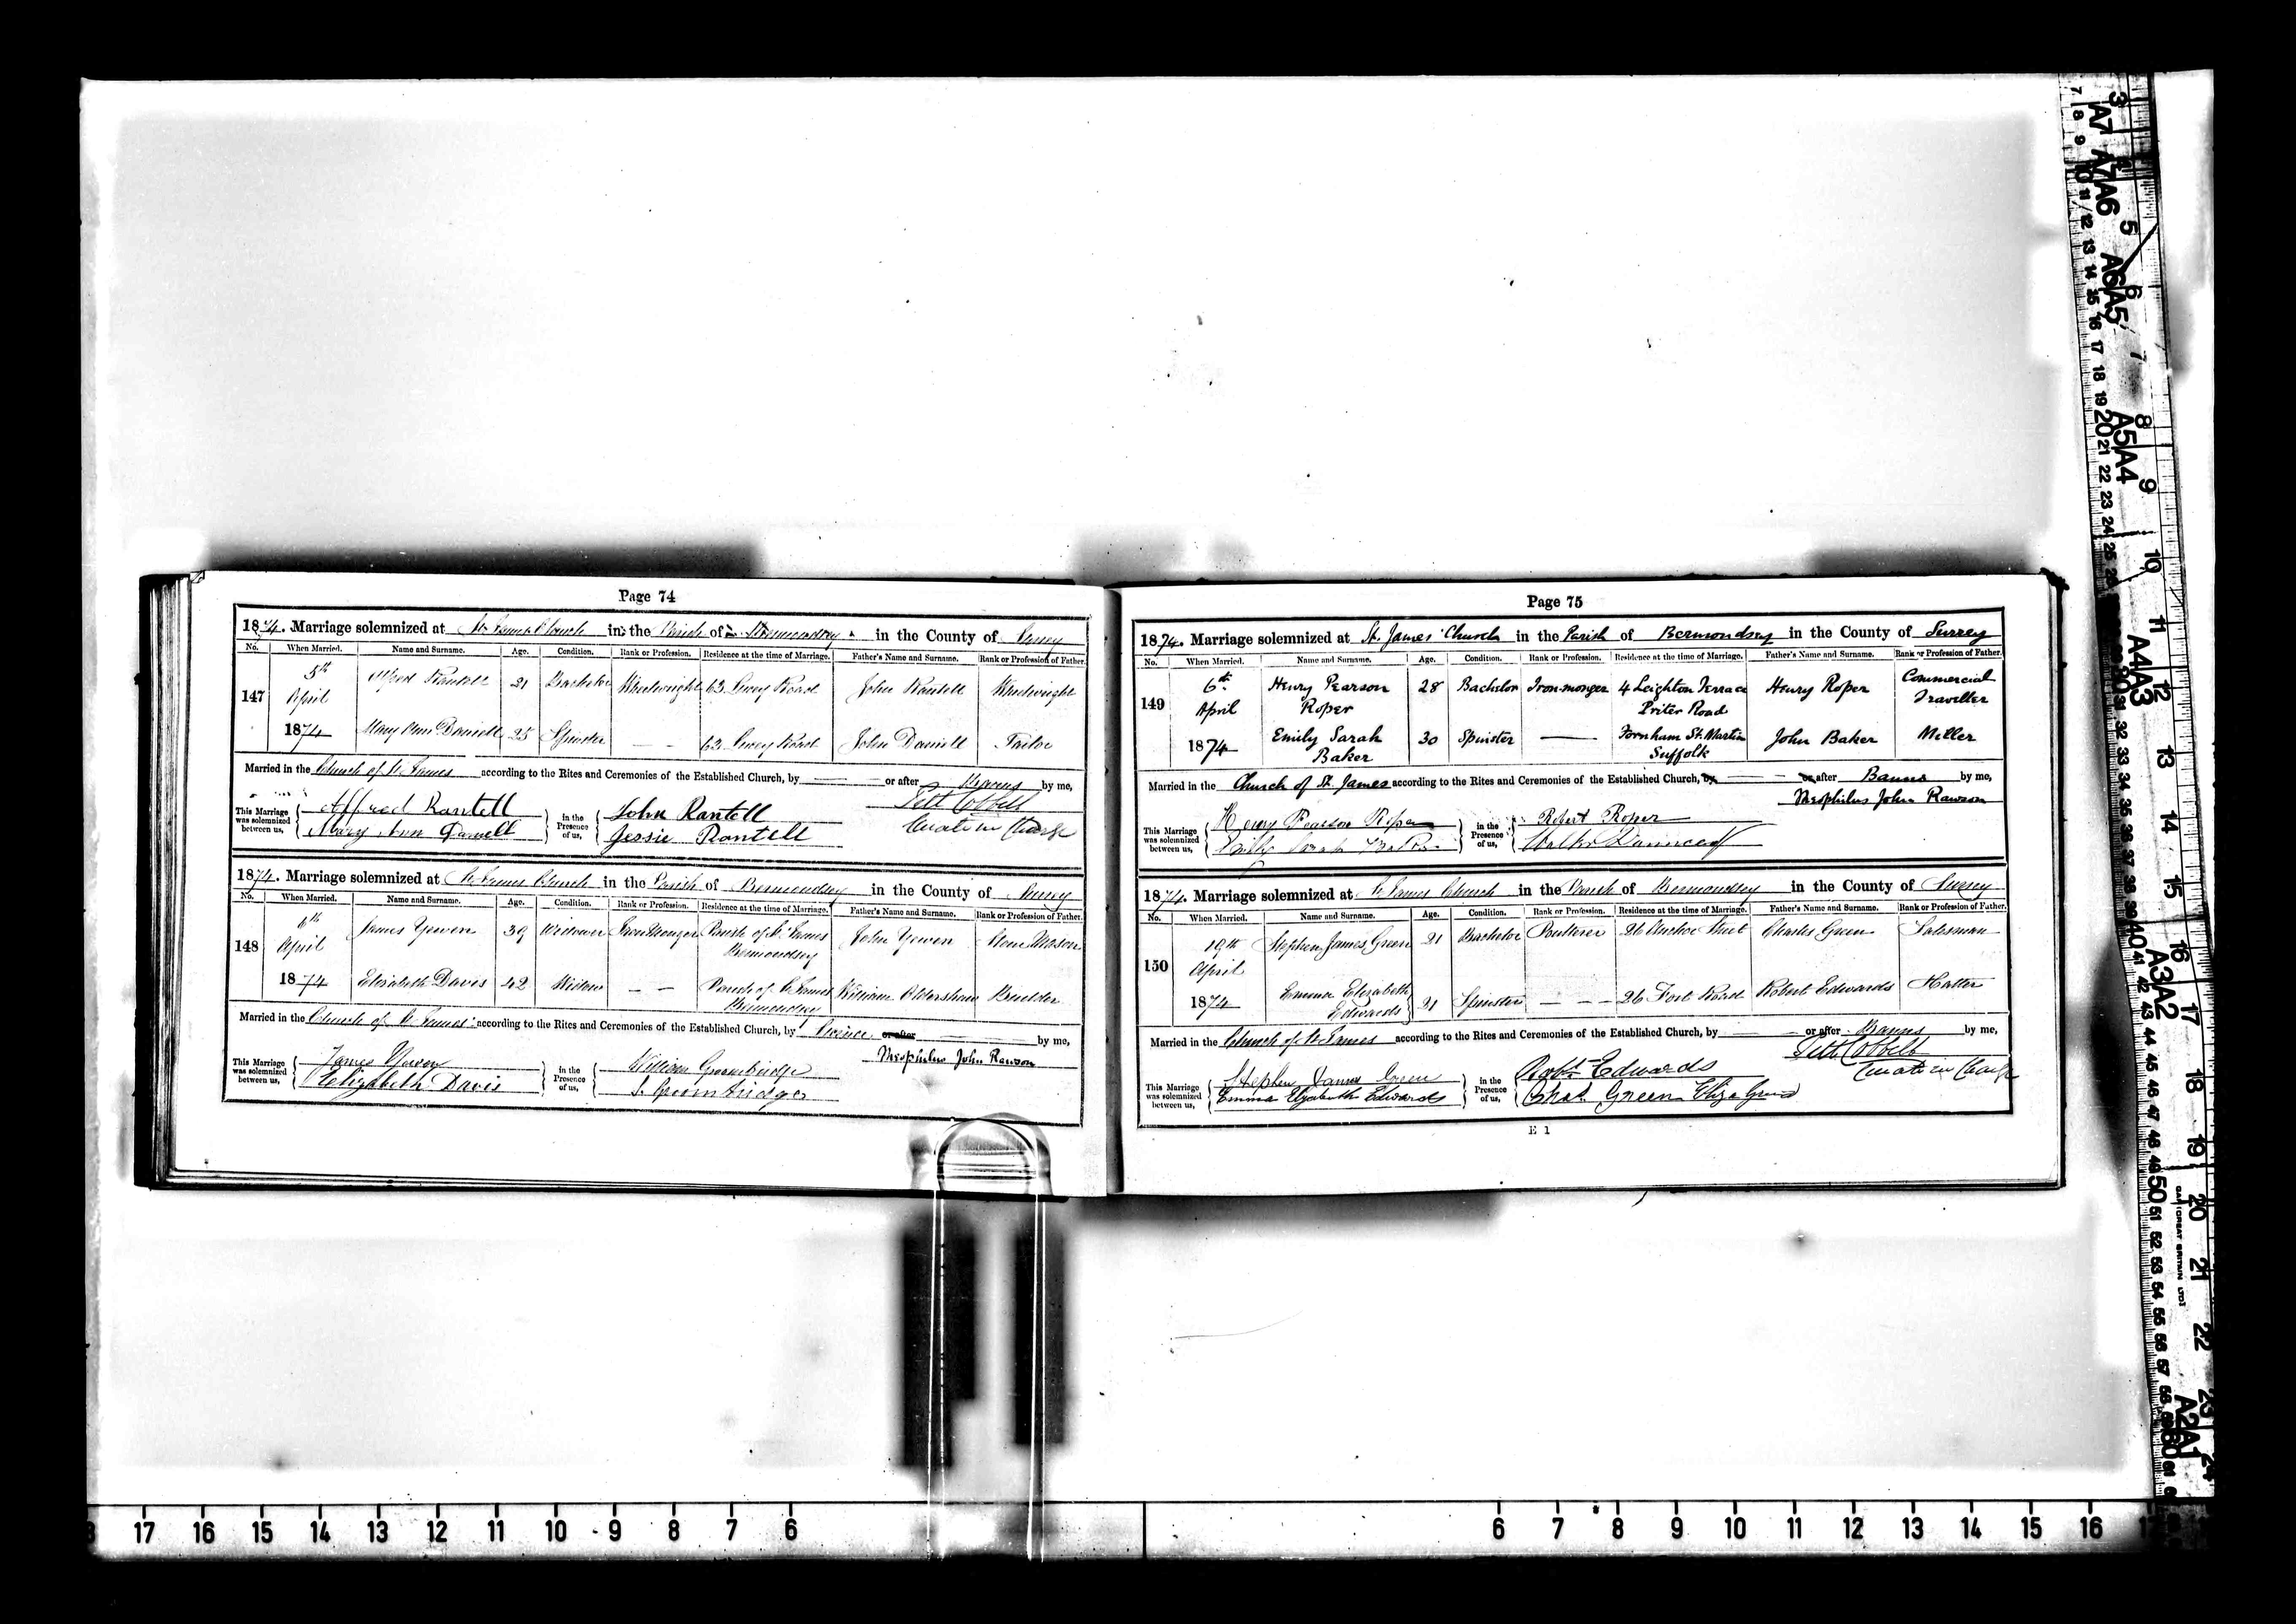 Page 74
1874. Marriage solemnized at St. James Church in the Parish of Bermondsey in the County of Surrey
No. When Married. Name and Surname. Age. Condition. Rank or Profession. Residence at the time of Marriage. Father's Name and Surname. Rank or Profession of Father.
147 5th April 1874 Alfred Rantell 21 Bachelor Wheelwright 63 Road John Rantell Wheelwright
Mary Ann Daniell 25 Spinster — — 63 Road John Daniell Tailor
Married in the Church of St. James according to the Rites and Ceremonies of the Established Church, by — or after Banns by me,
Pitt Cobbett
Curate in Charge
This Marriage was solemnized between us, Alfred Rantell in the Presence of us, John Rantell
Mary Ann Daniell Jessie Rantell
1874. Marriage solemnized at St. James Church in the Parish of Bermondsey in the County of Surrey
No. When Married. Name and Surname. Age. Condition. Rank or Profession. Residence at the time of Marriage. Father's Name and Surname. Rank or Profession of Father.
148 6th April 1874 James Yowen 39 Widower Iron Monger Parish of St. James Bermondsey John Yowen Stone Mason
Elizabeth Davis 42 Widow — — Parish of St. James Bermondsey William Builder
Married in the Church of St. James according to the Rites and Ceremonies of the Established Church, by Licence or after — by me,
Theophilus John Rawson
This Marriage was solemnized between us, James Yowen in the Presence of us, William Groombridge
Elizabeth Davis S. Groombridge
Page 75
1874. Marriage solemnized at St. James' Church in the Parish of Bermondsey in the County of Surrey
No. When Married. Name and Surname. Age. Condition. Rank or Profession. Residence at the time of Marriage. Father's Name and Surname. Rank or Profession of Father.
149 6th April 1874 Henry Pearson Roper 28 Bachelor Iron-monger 4 Leighton Terrace Priter Road Henry Roper Commercial Traveller
Emily Sarah Baker 30 Spinster — Fornham St. Martin Suffolk John Baker Miller
Married in the Church of St. James according to the Rites and Ceremonies of the Established Church, by — or after Banns by me,
Theophilus John Rawson
This Marriage was solemnized between us, Henry Pearson Roper in the Presence of us, Robert Roper
Emily Sarah Baker Walter
1874. Marriage solemnized at St. James Church in the Parish of Bermondsey in the County of Surrey
No. When Married. Name and Surname. Age. Condition. Rank or Profession. Residence at the time of Marriage. Father's Name and Surname. Rank or Profession of Father.
150 19th April 1874 Stephen James Green 21 Bachelor Poulterer 26 Anchor Street Charles Green Salesman
Emma Elizabeth Edwards 21 Spinster — — — 26 Fort Road Robert Edwards Hatter
Married in the Church of St. James according to the Rites and Ceremonies of the Established Church, by — or after Banns by me,
Pitt Cobbett
Curate in Charge
This Marriage was solemnized between us, Stephen James Green in the Presence of us, Robt. Edwards
Emma Elizabeth Edwards Chas. Green Eliza Green
E 1
17 16 15 14 13 12 11 10 9 8 7 6
6 7 8 9 10 11 12 13 14 15 16